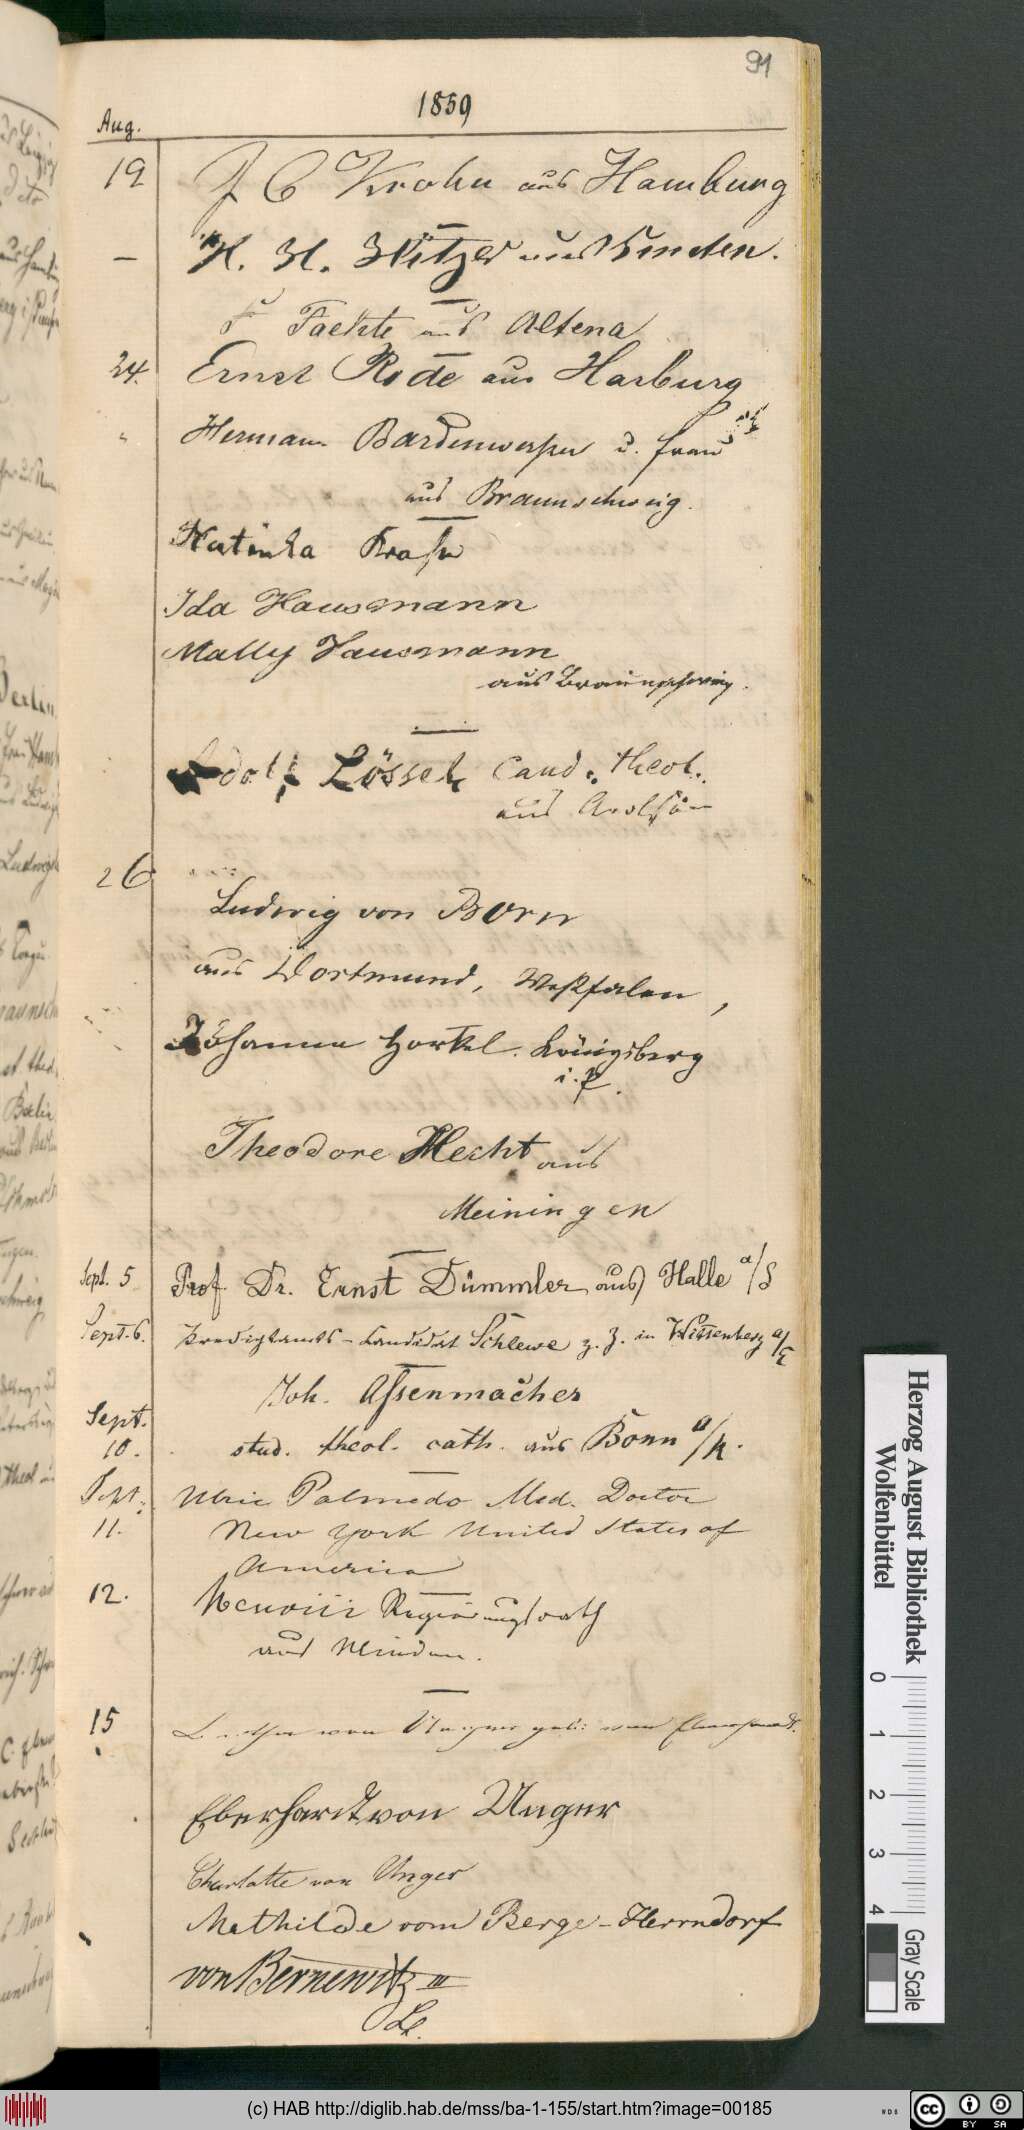 91
1859
Aug.
19 J C Krohn aus Hamburg
— H. H. aus Minden.
F aus Altena
24. Ernst Rode aus Harburg
Hermann Bardenwerper u. Frau
aus Braunschweig.
Katinka
Ida Hausmann
Mally Hausmann
aus Braunschweig.
Adolf Lössel, Cand. theol.
aus Arolsen
26
Ludwig von Born
aus Dortmund, Westfalen,
Johannes Horkel. Königsberg
i. P.
Theodore Hecht aus
Meiningen
Sept. 5 Prof Dr. Ernst Dümmler aus Halle a/S
Sept. 6. Predigtamts-Candidat Schlewe z. Z. in Wittenberg a/E
Joh. Assenmacher
Sept.
10. stud. theol. cath. aus Bonn a/R.
Sept.
11. Ulric Palmedo Med. Doctor
New York United States of
America
12. Regierungsrath
aus Minden.
15 von Unger geb: von
Eberhardt von Unger
Charlotte von Unger
Mathilde vom Berge-Herrndorf
von Bernewitz III
Lt.
Herzog August Bibliothek
Wolfenbüttel
0 1 2 3 4
Gray Scale
(c) HAB http://diglib.hab.de/mss/ba-1-155/start.htm?image=00185
WDB
cc
BY SA